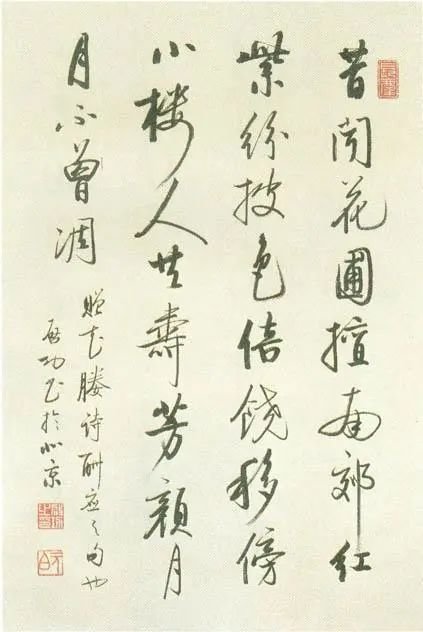 昔闻花圃擅南郊红
紫纷披色倍饶移傍
小楼人共壽芳颜月
月不曾凋
赠花媵诗酬应之句也
启功书於北京